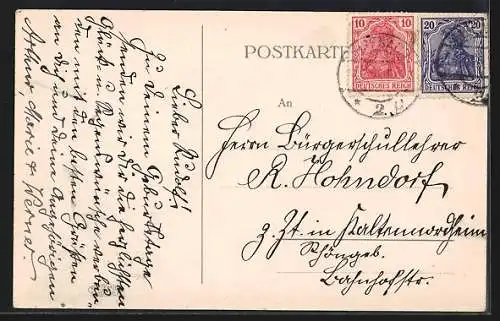 Lieber Rudolf!
Zu Deinem Geburtstage
senden wir Dir die herzlichsten
Glück u. Segenswünsche verbun-
den mit den besten Grüßen
an Dich und deine Angehörigen
Arthur, Marie & Werner.
POSTKARTE
10 10
DEUTSCHES REICH
20 20
DEUTSCHES REICH
An
Herrn Bürgerschullehrer
R. Hohndorf
z. Zt. in Kaltennordheim
Bahnhofstr.